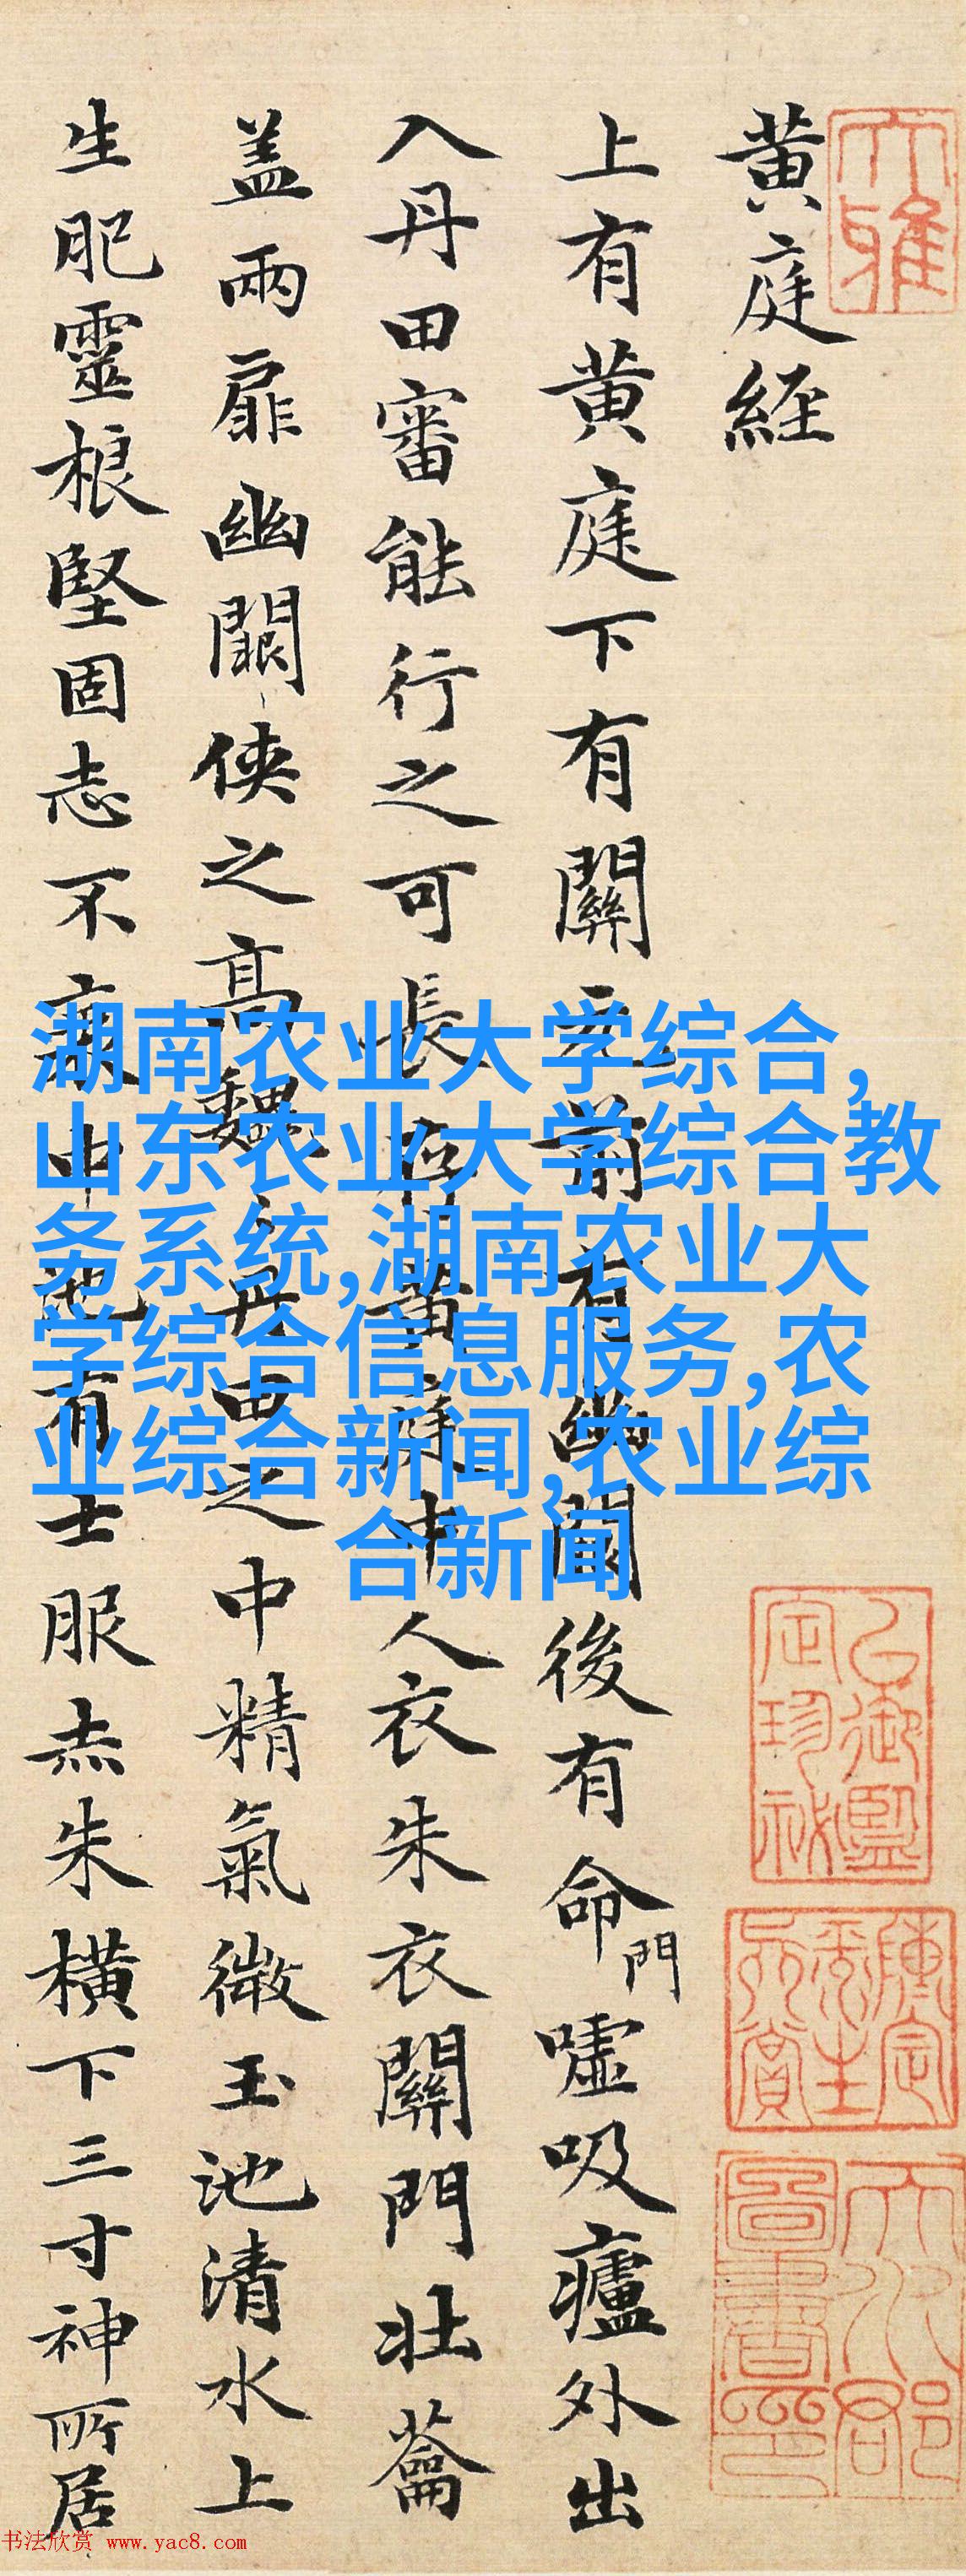 大雅
黄庭経
上有黄庭下有關元前有幽闕後有命門嘘吸廬外出
入丹田審能行之可長存黄庭中人衣朱衣關門壯蘥
盖兩扉幽闕侠之高巍丹田之中精氣微玉池清水上
生肥靈根堅固志不衰中池有士服赤朱横下三寸神所居
湖南农业大学综合,
山东农业大学综合教
务系统,湖南农业大
学综合信息服务,农
业综合新闻,农业综
合新闻
书法欣赏 www.yac8.com